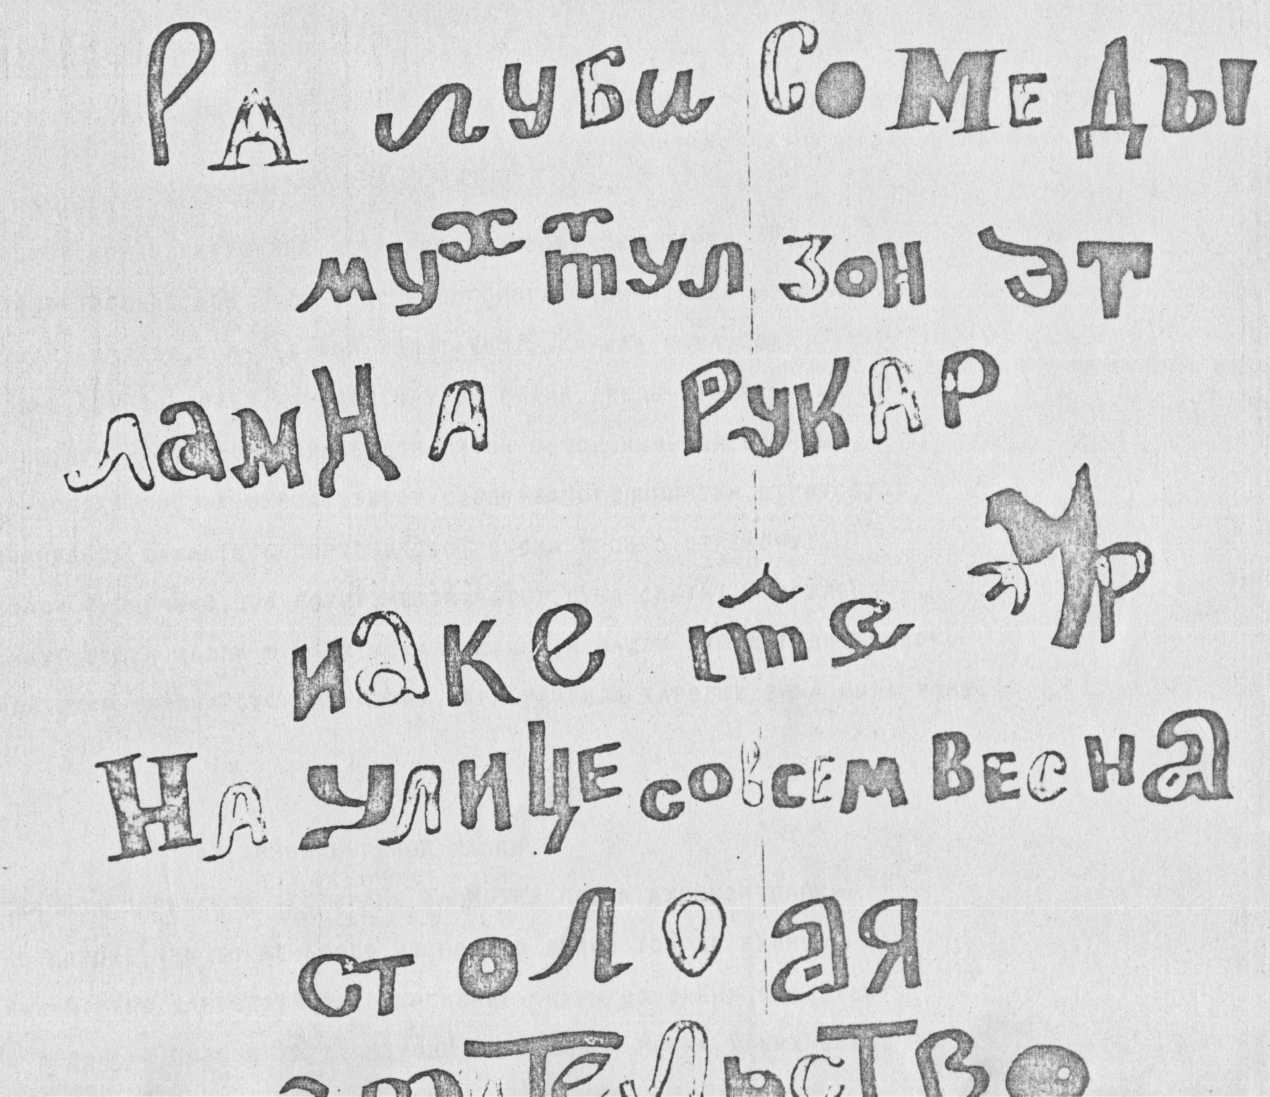 РА ЛУБИ СОМЕДЫ
МУХ ТУЛ ЗОН ЭТ
ЛАМНА РУКАР
ИАКЕ ТЯ
НА УЛИЦЕ СОВСЕМ ВЕСНА
СТ ОЛО АЯ